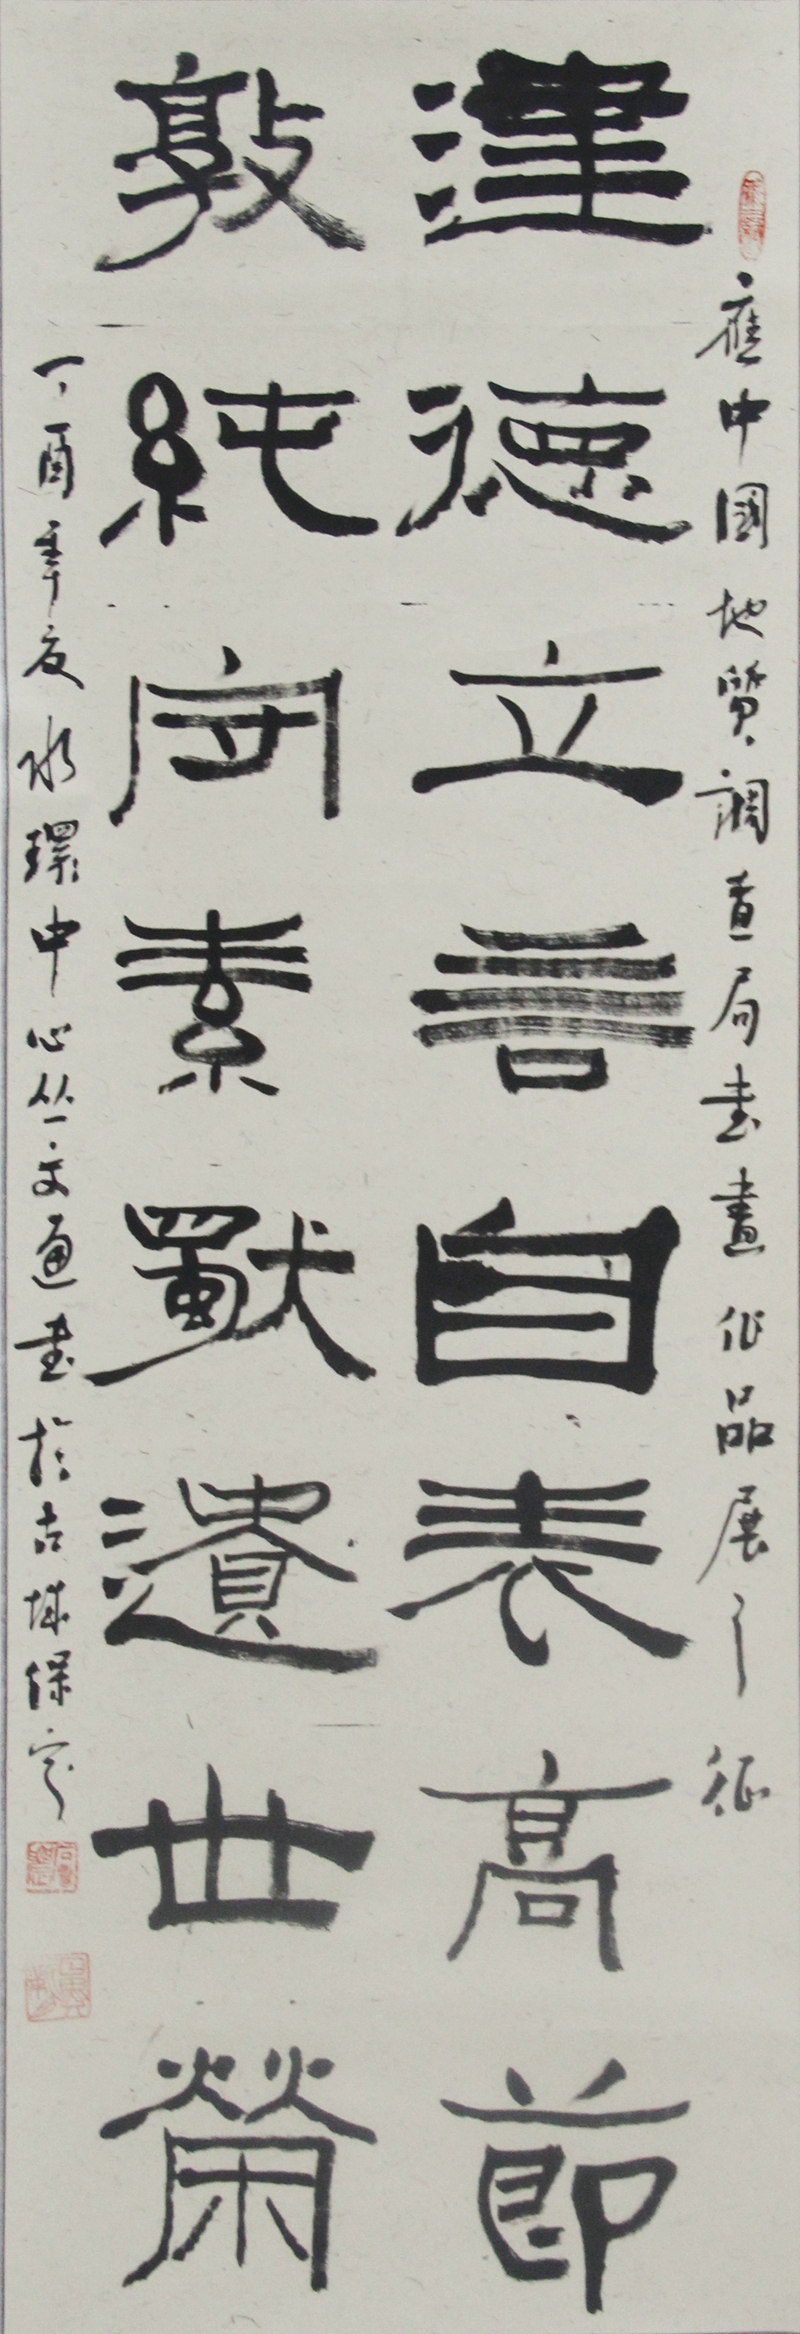 應中國地質調查局書畫作品展之征
津德立言自表高節
敦純守素獸遺世榮
丁酉年夏水環中心丛文通書於古城保定